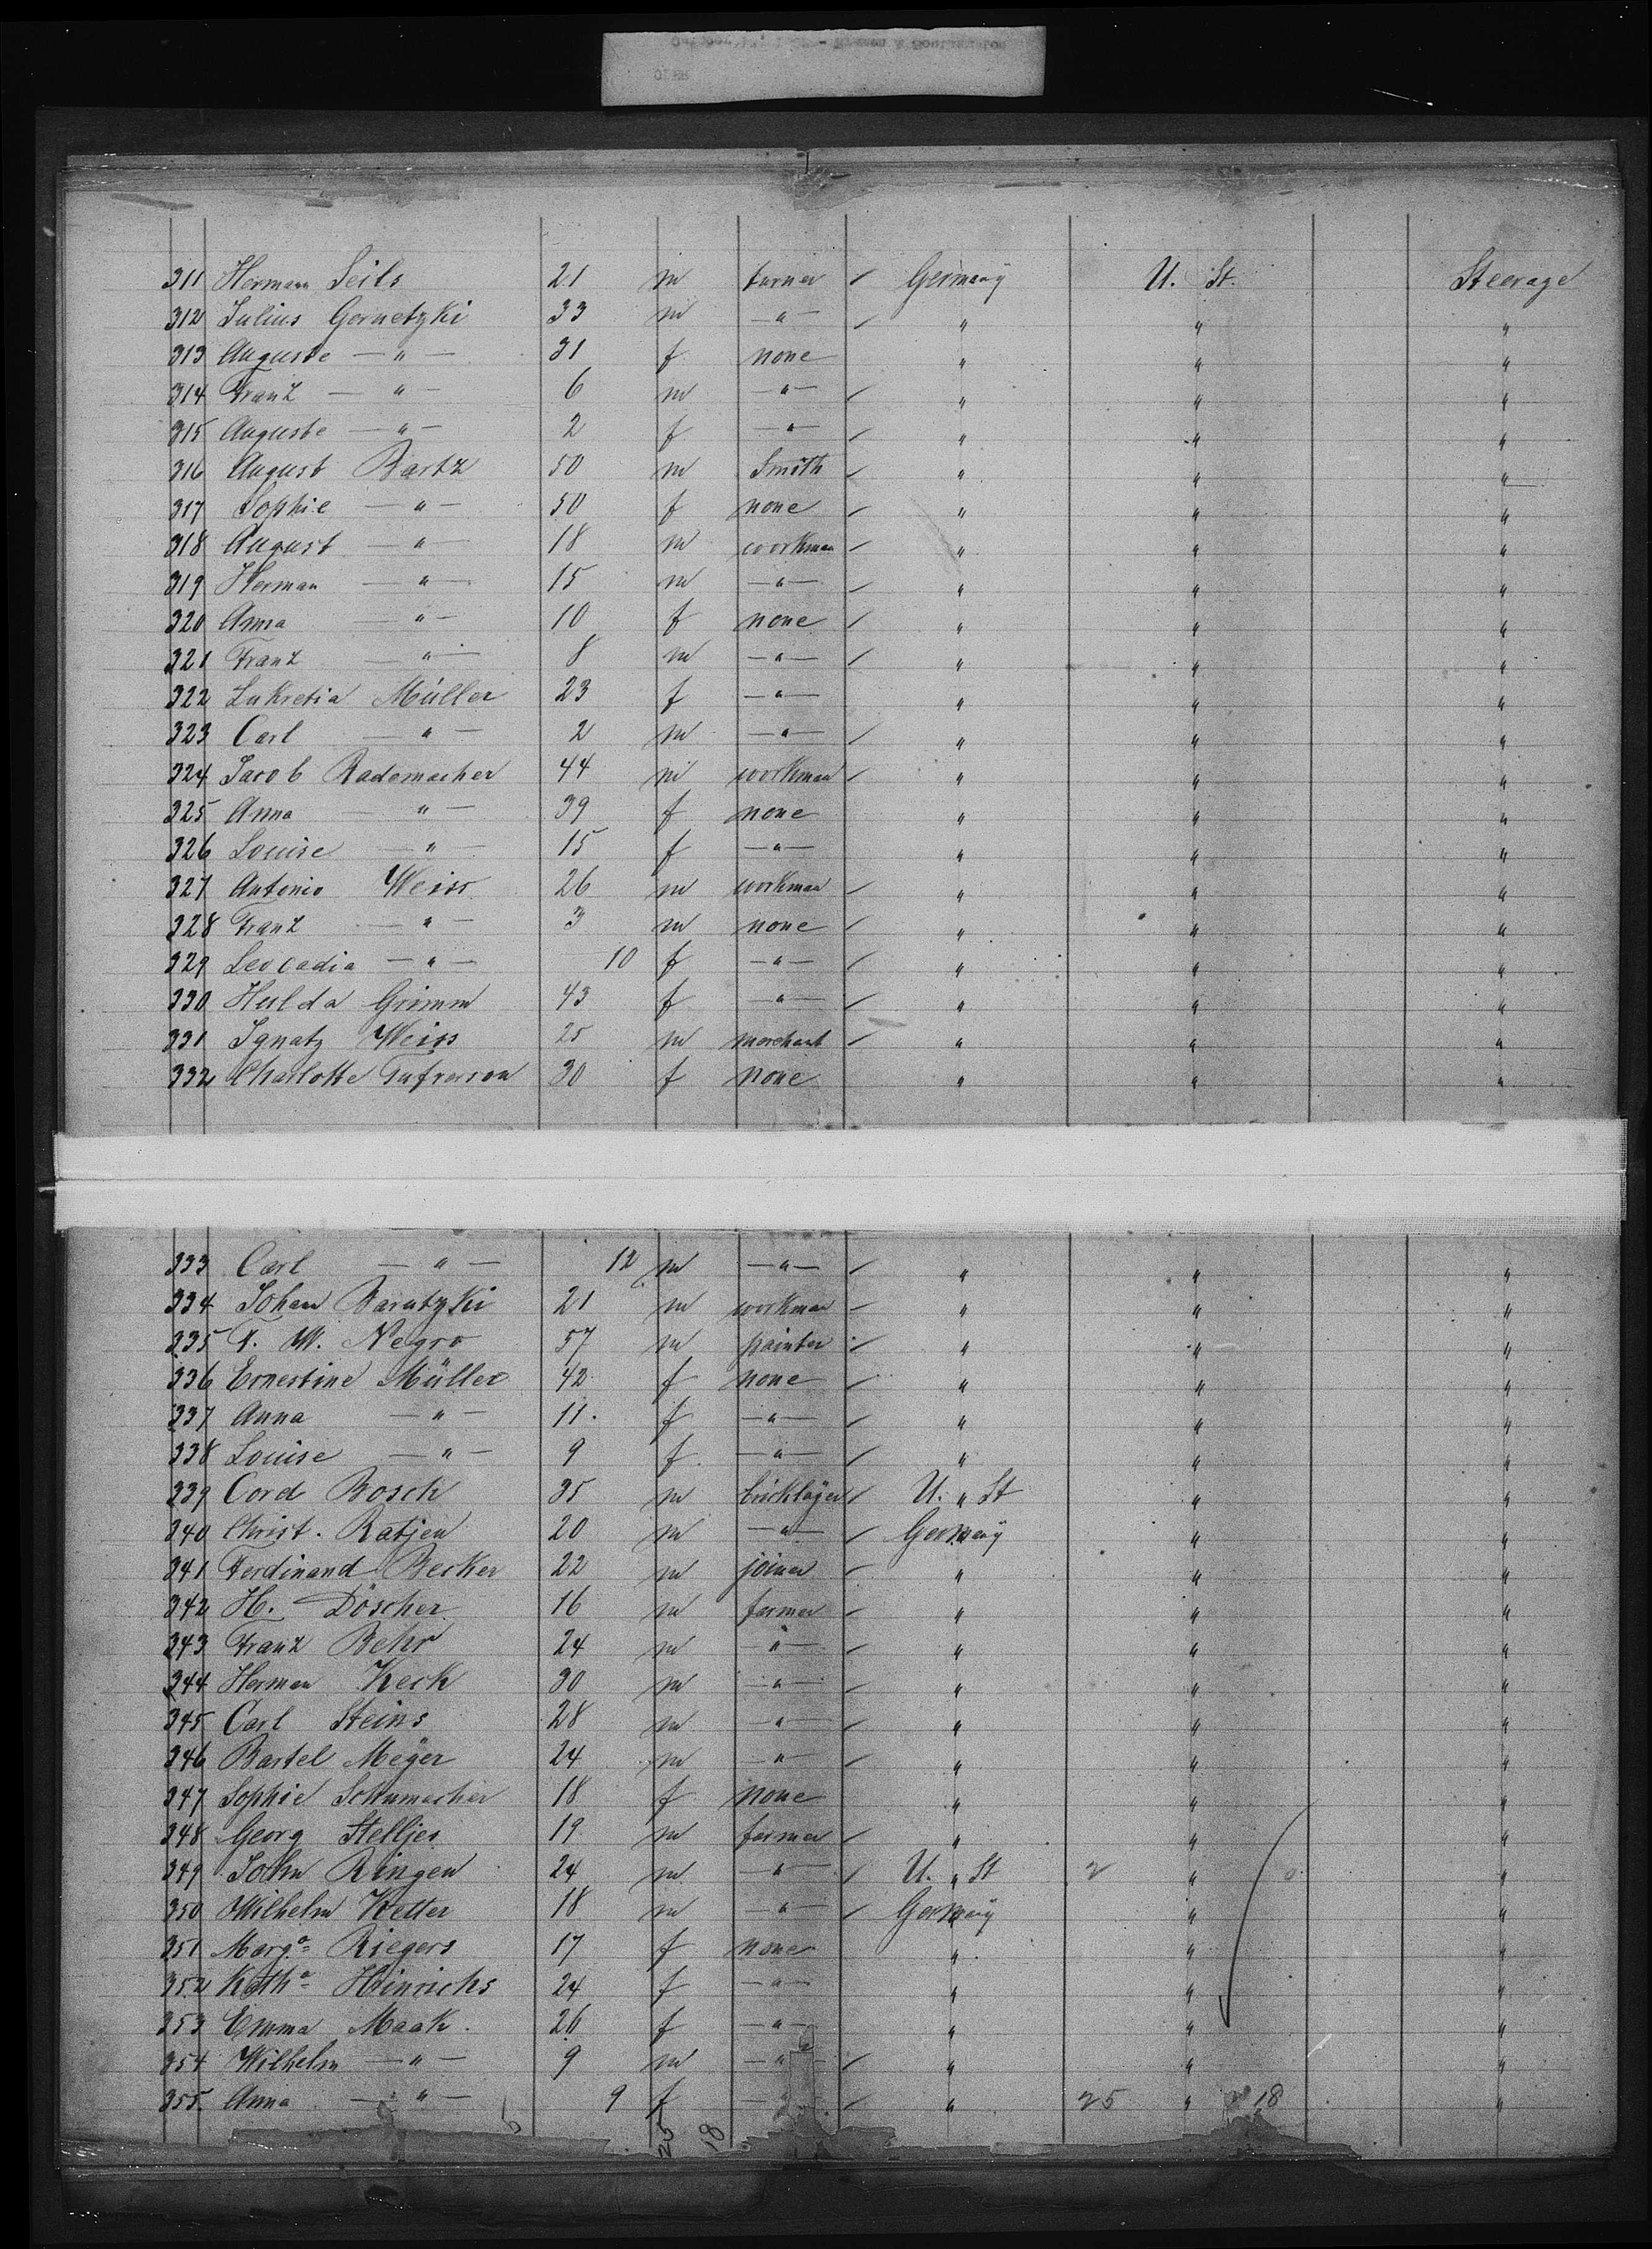 311 Herman Seils 21 m farmer / Germany U. St. Steerage
312 Julius Gornetzki 33 m —"— / " " "
313 Auguste —"— 31 f none " " "
314 Franz —"— 6 m —"— / " " "
315 Auguste —"— 2 f —"— / " " "
316 August Bartz 50 m Smith / " " "
317 Sophie —"— 50 f none / " " "
318 August —"— 18 m workman / " " "
319 Herman —"— 15 m —"— / " " "
320 Anna —"— 10 f none / " " "
321 Franz —"— 8 m —"— / " " "
322 Lukretia Müller 23 f —"— " " "
323 Carl —"— 2 m —"— / " " "
324 Jacob Rademacher 44 m workman / " " "
325 Anna —"— 39 f none " " "
326 Louise —"— 15 f —"— " " "
327 Antonio Weiss 26 m workman / " " "
328 Franz —"— 3 m none / " " "
329 Leocadia —"— 10 f —"— / " " "
330 Hulda Grimm 43 f —"— / " " "
331 Ignatz Weiss 25 m merchant / " " "
332 Charlotte 30 f none " " "
333 Carl —"— 12 m —"— / " " "
334 Johan Barutzki 21 m workman / " " "
335 F. W. Negro 57 m painter / " " "
336 Ernestine Müller 42 f none / " " "
337 Anna —"— 11. f —"— / " " "
338 Louise —"— 9 f —"— / " " "
339 Cord Bosch 35 m bricklayer / U. " St " "
340 Christ. Ratjen 20 m —"— / Germany " "
341 Ferdinand Becker 22 m joiner / " " "
342 H. Döscher 16 m farmer / " " "
343 Franz Behr 24 m —"— / " " "
344 Herman Keck 30 m —"— / " " "
345 Carl Steins 28 m —"— / " " "
346 Bartel Meÿer 24 m —"— / " " "
347 Sophie Schumacher 18 f none " " "
348 Georg Stelljes 19 m farmer / " " "
349 John Ringen 24 m —"— / U. " St 2 " "
350 Wilhelm Ketter 18 m —"— / Germany " "
351 Marg.a Riegers 17 f none " " "
352 Kath.a Hinrichs 24 f —"— " " "
353 Emma Maak. 26 f —"— " " "
354 Wilhelm —"— 9 m —"— / " " "
355. Anna —"— 9 f —"— / " 25 " 18 "
5 25 18